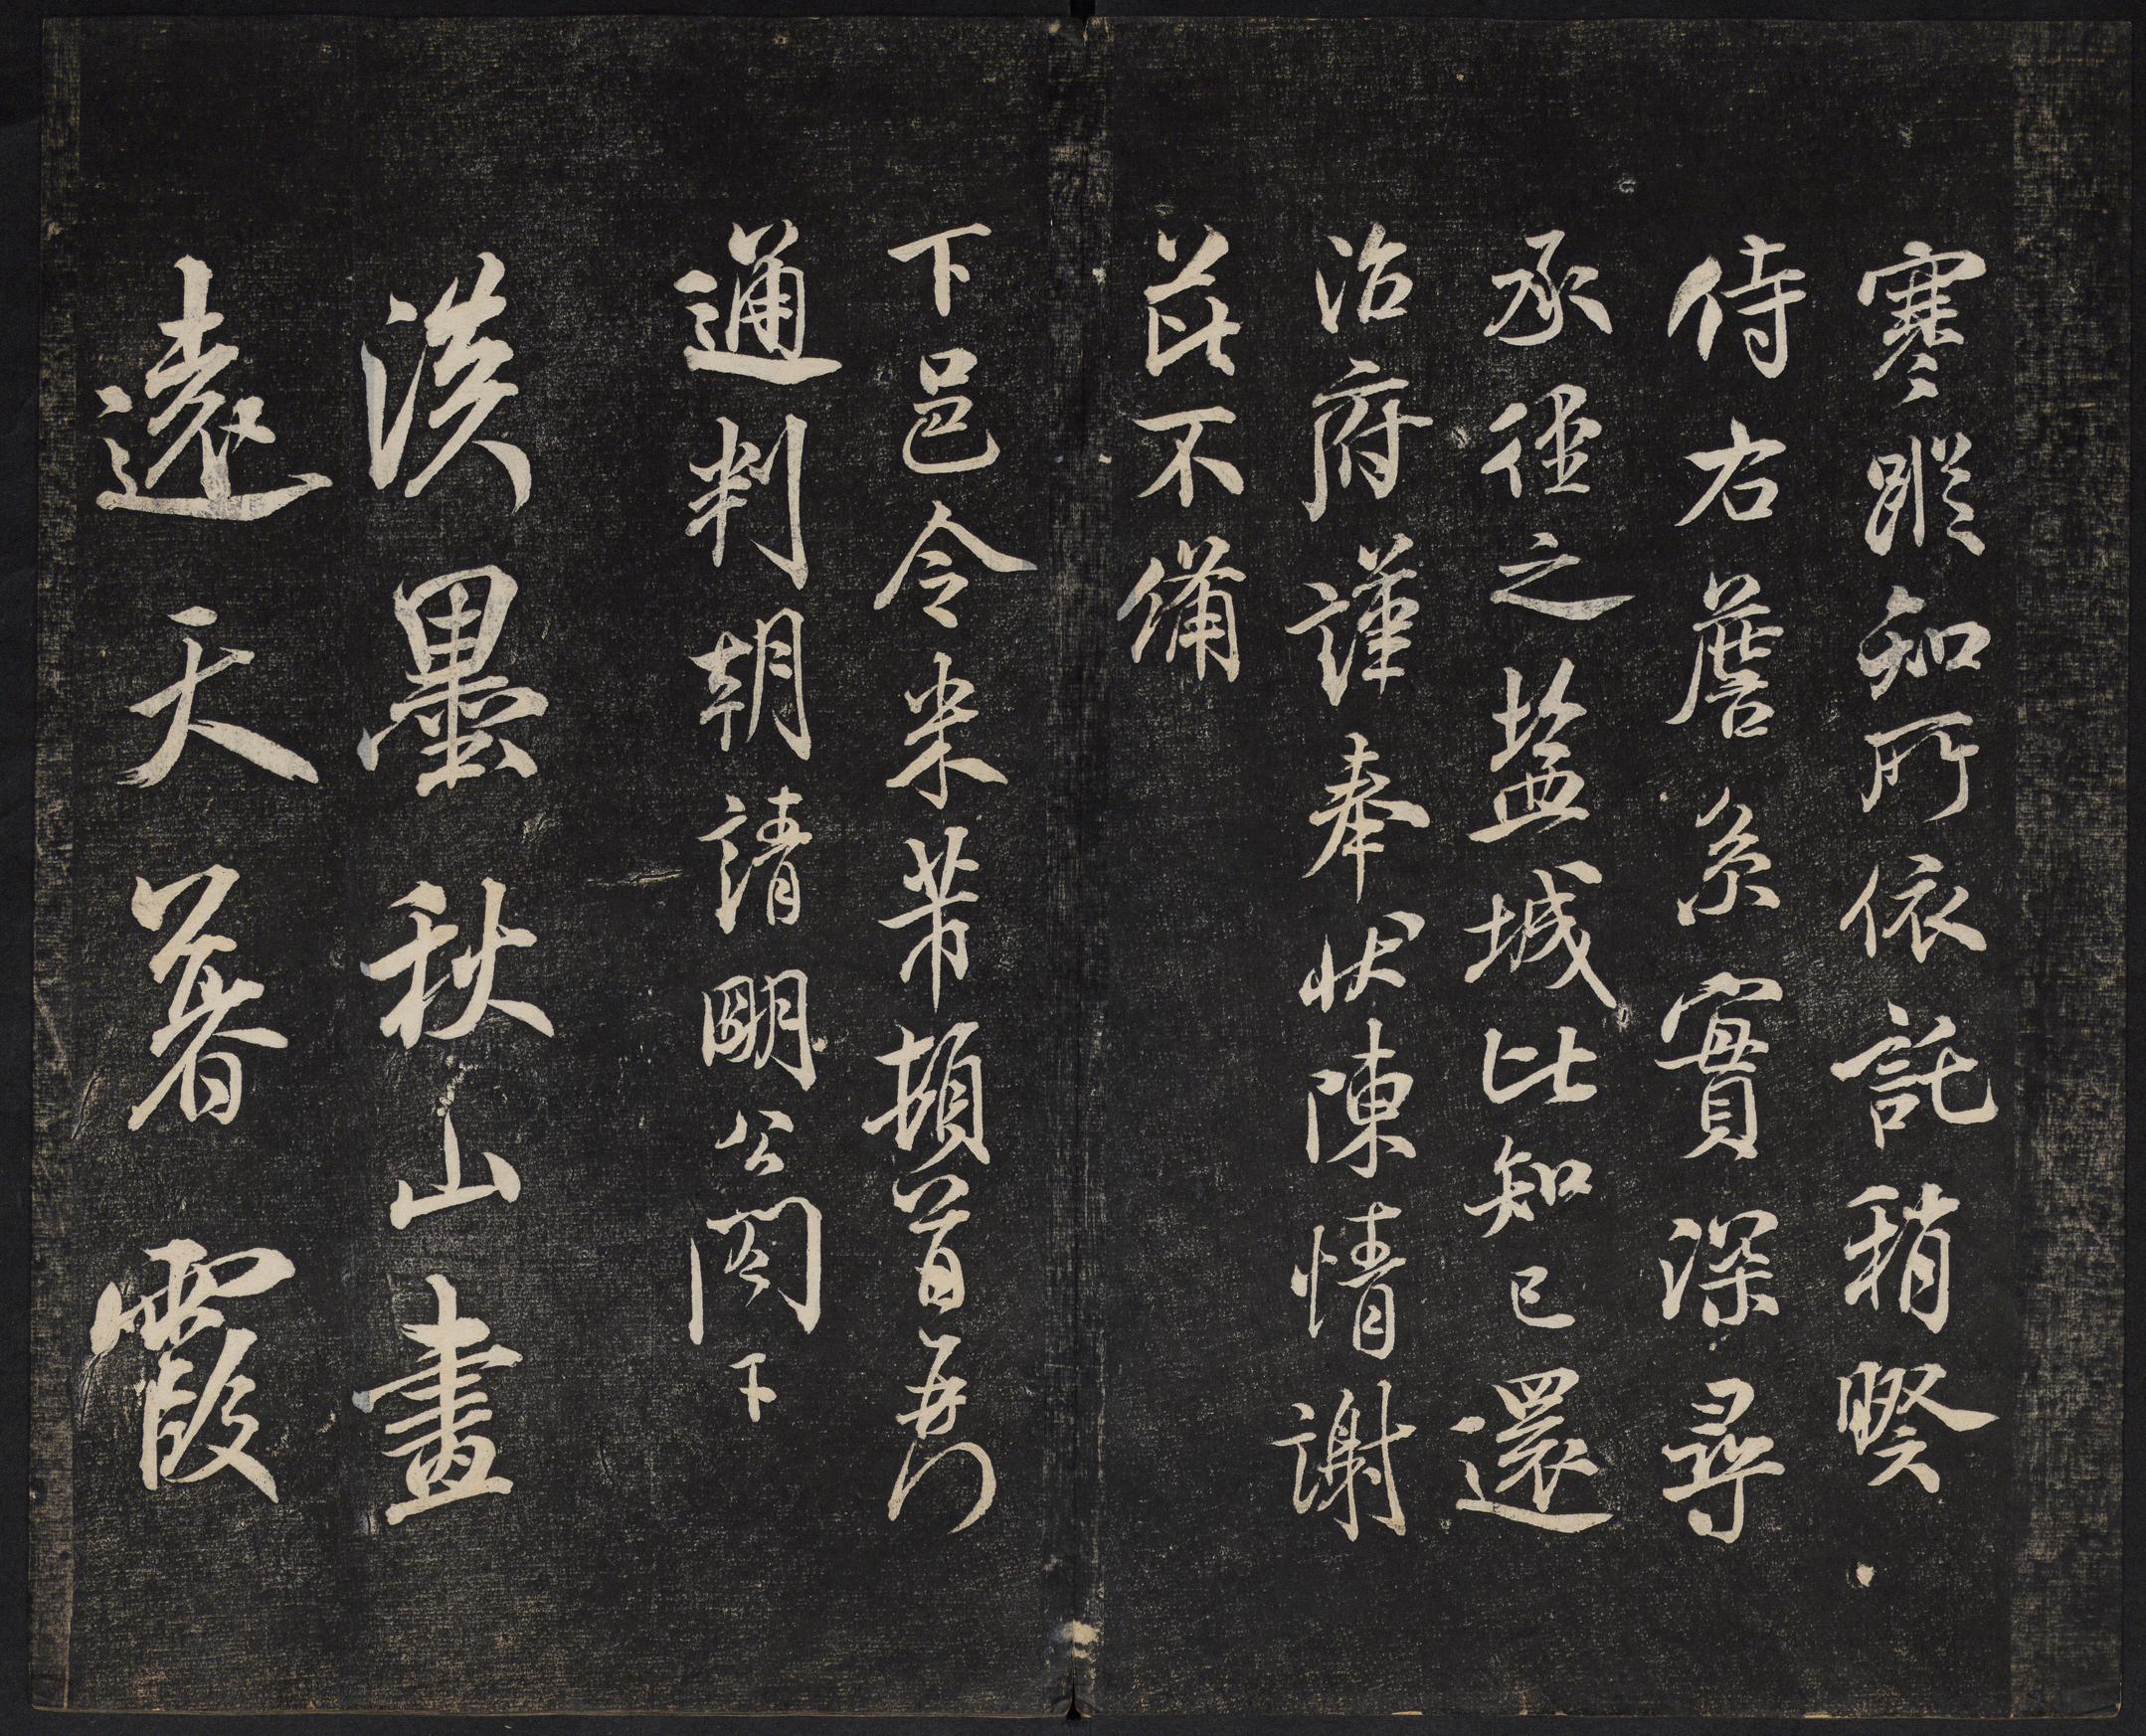 寒蹤知所依託稍暌
侍右詹系實深尋
承徑之盐城比知已還
治府謹奉状陳情謝
茈不備
下邑令米芾頓首再
通判朝請朙公閤下
淡墨秋山畫
遠天暮霞